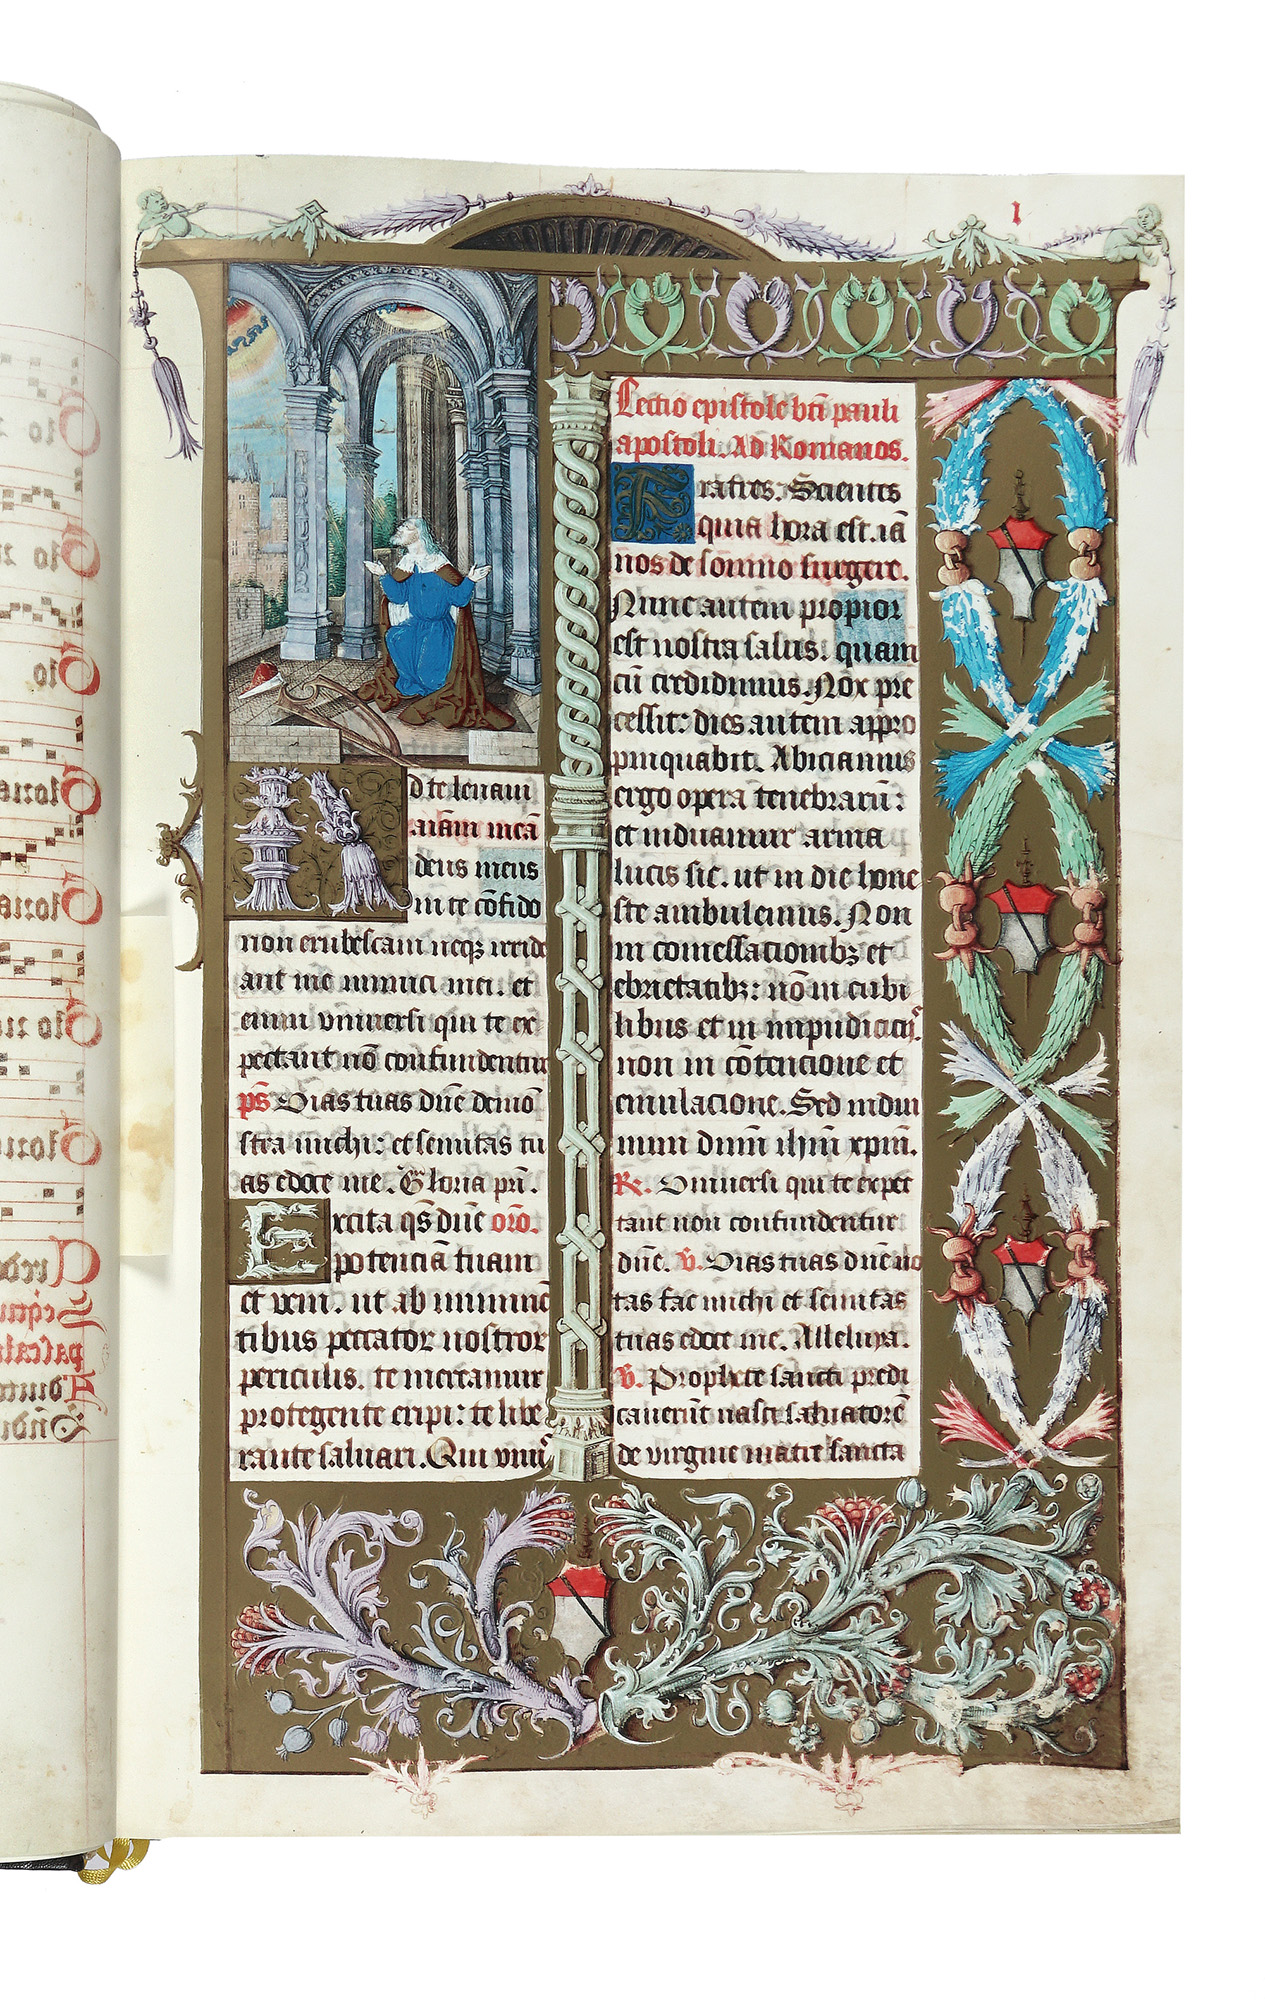 I
Ad te levavi
aīam meā
deus meus
in te cōfido
non erubescam neqꝫ irride
ant me inimici mei. et
enim vniuersi qui te ex
pectant nō confundentur
p̄s Vias tuas dn̄e demō
stra michi: et semitas tu
as edoce me. Gloria pr̄i.
Excita q̄s dn̄e oro.
potenciā tuam
et veni. ut ab imminē
tibus peccatoꝝ nostroꝝ
periculis. te mereamur
protegente eripi: te libe
rante saluari. Qui viuis
Lectio epistole bt̄i pauli
apostoli. Ad Romanos.
Fratres. Scientes
quia hora est. iā
nos de sōmno surgere.
Nunc autem propior
est nostra salus. quam
cū credidimus. Nox pre
cessit: dies autem appro
pinquabit. Abiciamus
ergo opera tenebrarū:
et induamur arma
lucis sic. ut in die hone
ste ambulemus. Non
in comessacionibꝫ et
ebrietatibꝫ: nō in cubi
libus et in impudiciciis.
non in cōtencione et
emulacione. Sed indui
mini dnm̄ ihm̄ xp̄m.
R. Vniuersi qui te expec
tant non confundentur
dn̄e. v. Vias tuas dn̄e no
tas fac michi et semitas
tuas edoce me. Alleluya.
v. Prophete sancti predi
cauerūt nasci saluatorē
de virgine matre sancta